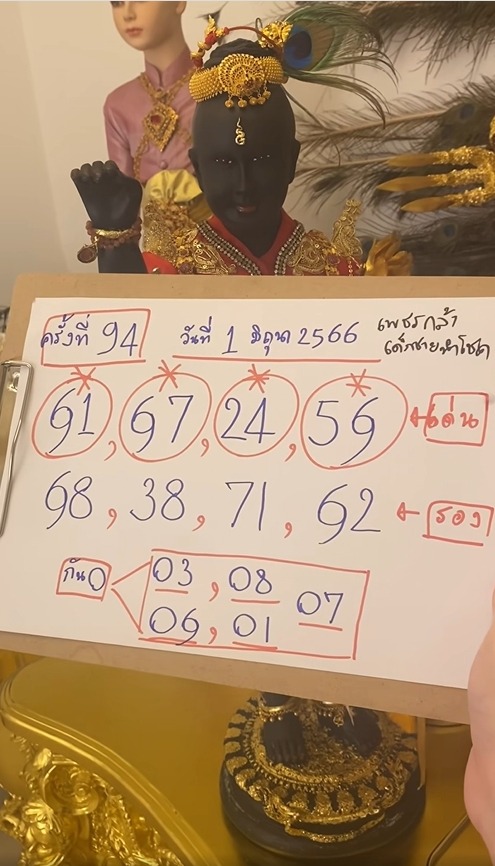 ครั้งที่ 94 วันที่ 1 มิถุนา 2566 เพชรกล้า
เด็กชายนำโชค
91, 97, 24, 59 ← เด่น
98, 38, 71, 92 ← รอง
กัน 0 03, 08 07
09, 01